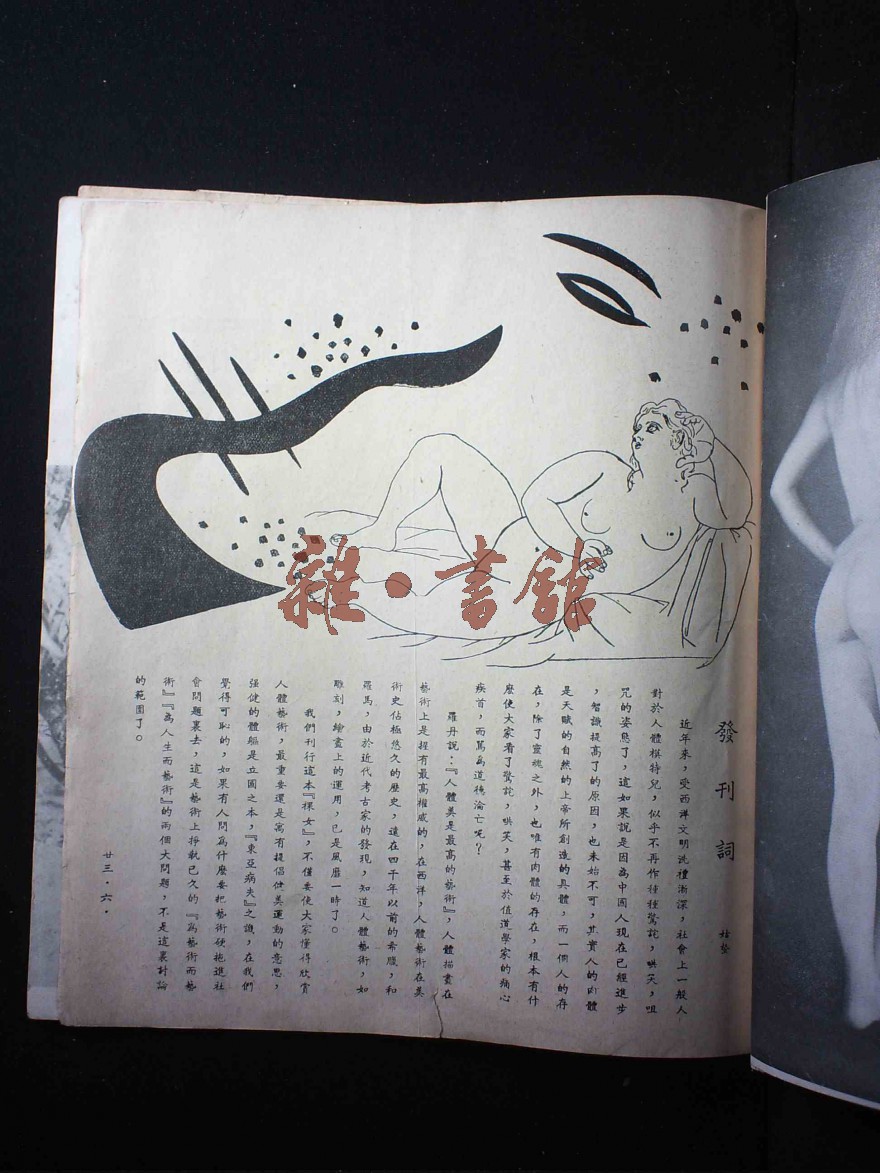 發刊詞
桂蟄
近年來，受西洋文明洗禮漸深，社會上一般人
對於人體模特兒，似乎不再作種種驚詫，哄笑，咀
咒的姿態了，這如果說是因為中國人現在已經進步
，智識提高了的原因，也未始不可，其實人的肉體
是天賦的自然的上帝所創造的具體，而一個人的存
在，除了靈魂之外，也唯有肉體的存在，根本有什
麼使大家看了驚詫，哄笑，甚至於值道學家的痛心
疾首，而罵為道德淪亡呢？
羅丹說：『人體美是最高的藝術』，人體描畫在
藝術上是握有最高權威的，在西洋，人體藝術在美
術史佔極悠久的歷史，遠在四千年以前的希臘，和
羅馬，由於近代考古家的發現，知道人體藝術，如
雕刻，繪畫上的運用，已是風靡一時了。
我們刊行這本『裸女』，不僅要使大家懂得欣賞
人體藝術，最重要還是寓有提倡健美運動的意思，
强健的體軀是立國之本，『東亞病夫』之譏，在我們
覺得可恥的，如果有人問為什麼要把藝術硬拖進社
會問題裏去，這是藝術上掙執已久的『為藝術而藝
術』『為人生而藝術』的兩個大問題，不是這裏討論
的範圍了。
廿三·六·
雜·書館